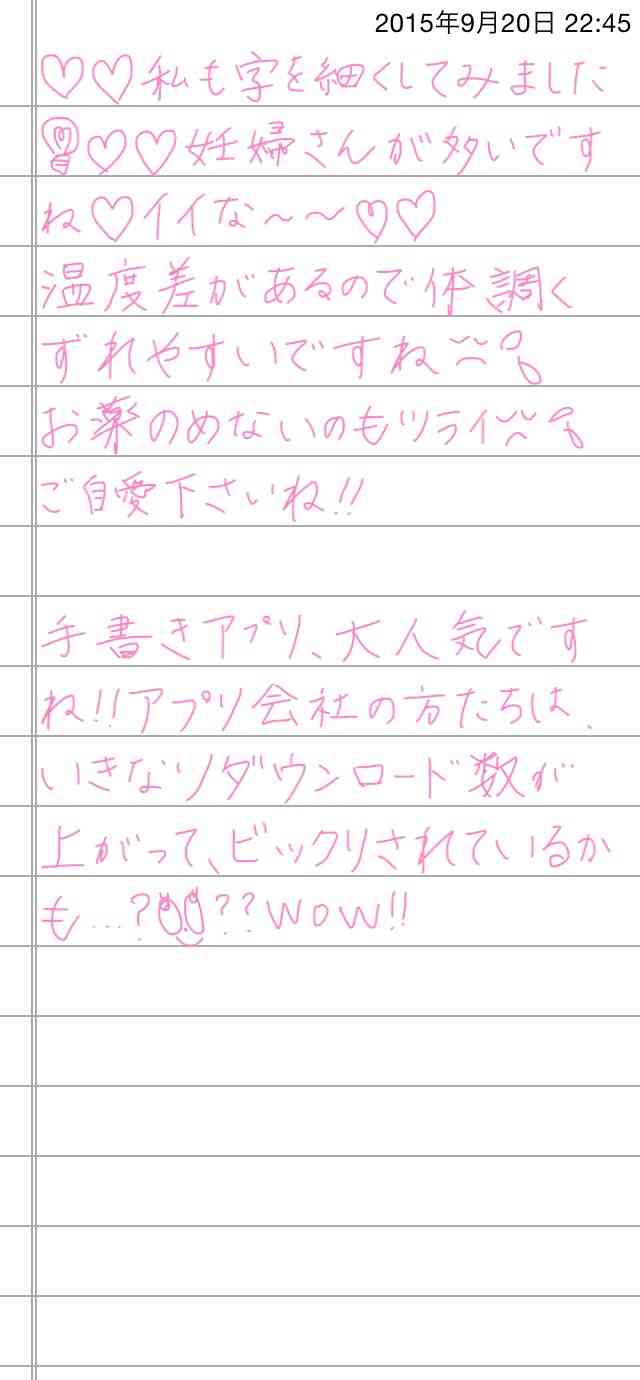 2015年9月20日 22:45
♡♡私も字を細くしてみました
♡♡妊婦さんが多いです
ね♡イイな〜〜♡♡
温度差があるので体調く
ずれやすいですね
お薬のめないのもツライ
ご自愛下さいね!!
手書きアプリ、大人気です
ね!!アプリ会社の方たちは、
いきなりダウンロード数が
上がって、ビックリされているか
も...???WOW!!